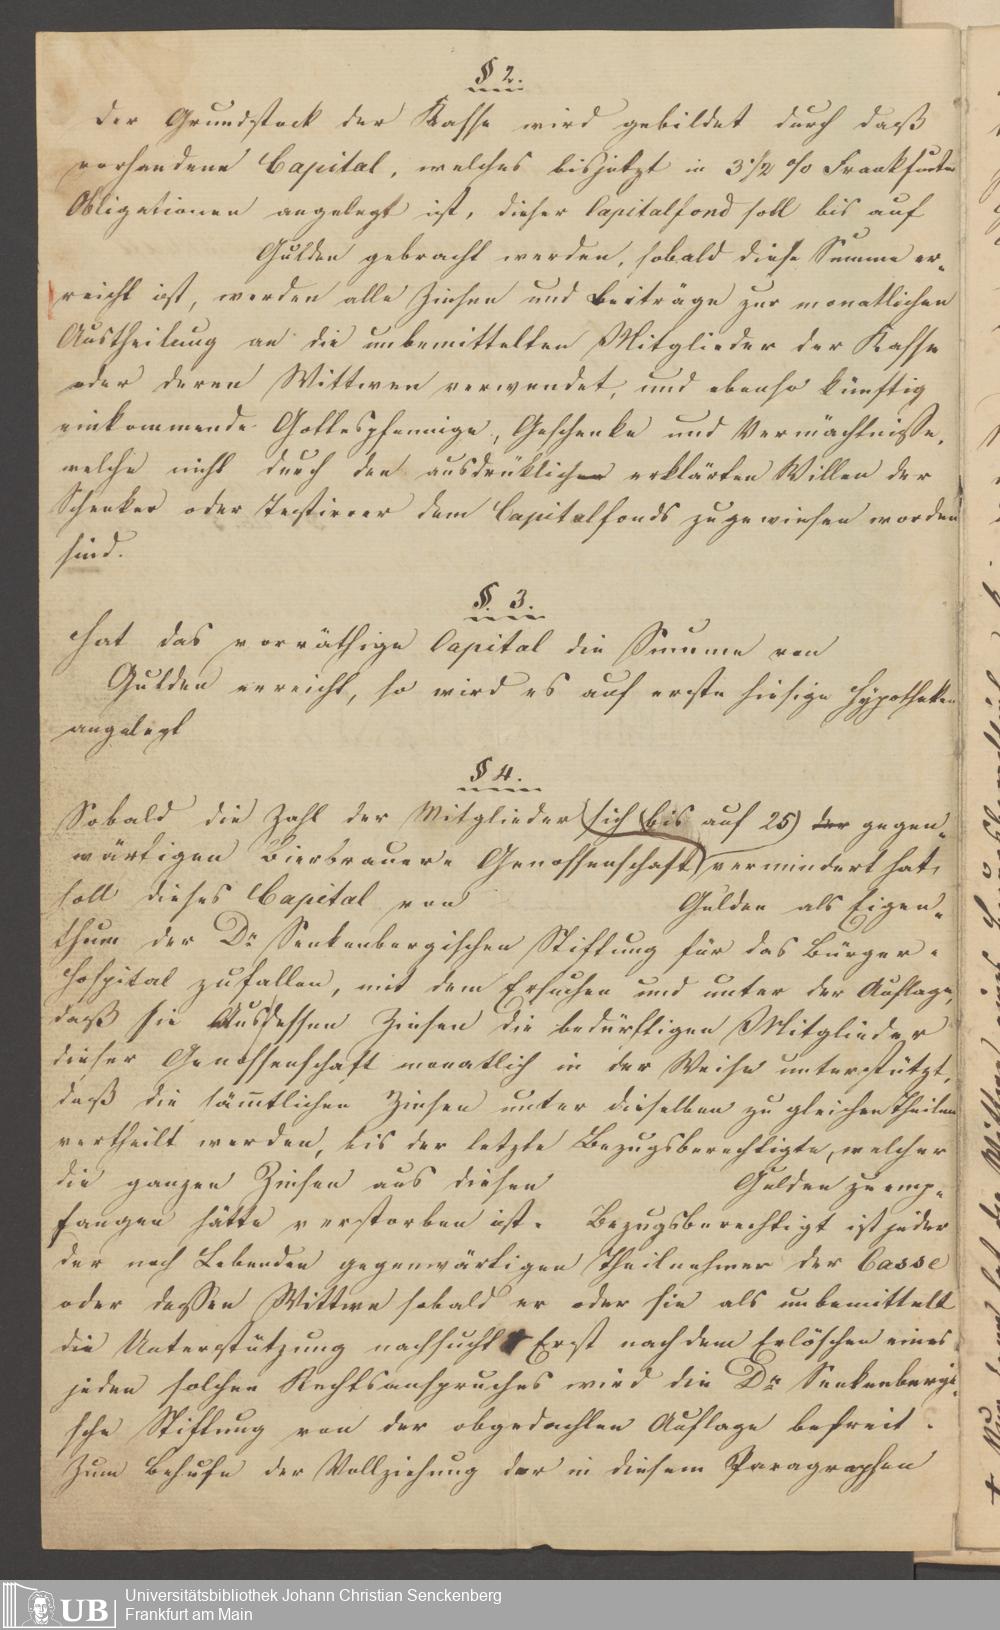 § 2.
Der Grundstock der Kasse wird gebildet durch daß
vorhandene Capital, welches bisjetzt in 3 1/2 % Frankfurter
Obligationen angelegt ist, dieser Capitalfond soll bis auf
Gulden gebracht werden, sobald diese Summe er-
reicht ist, werden alle Zinsen und Beiträge zur monatlichen
Austheilung an die unbemittelten Mitglieder der Kasse
oder deren Wittwen verwendet, und ebenso künftig
einkommende Gottespfennige, Geschenke und Vermächtnisse,
welche nicht durch den ausdrüklichen erklärten Willen der
Schenker oder Testierer dem Capitalfonds zugewiesen worden
sind.
§. 3.
Hat das vorräthige Capital die Summe von
Gulden erreicht, so wird es auf erste hiesige Hypotheken
angelegt
§ 4.
Sobald die Zahl der Mitglieder (sich (bis auf 25) der gegen-
wärtigen Bierbrauer- Genossenschaft) vermindert hat,
soll dieses Capital von Gulden als Eigen-
thum der Dr. Senkenbergischen Stiftung für das Bürger-
hospital zufallen, mit dem Ersuchen und unter der Auflage,
daß sie Aus dessen Zinsen die bedürftigen Mitglieder
dieser Genossenschaft monatlich in der Weise unterstützt,
daß die säm̅tlichen Zinsen unter dieselben zu gleichen Theilen
vertheilt werden, bis der letzte Bezugsberechtigte, welcher
die ganzen Zinsen aus diesen Gulden zu emp-
fangen hätte verstorben ist. Bezugsberechtigt ist jeder
der noch Lebenden gegenwärtigen Theilnehmer der Casse
oder dessen Wittwe sobald er oder sie als unbemittelt
die Unterstützung nachsucht Erst nach dem Erlöschen eines
jeden solchen Rechtsanspruches wird die Dr. Senkenbergi-
sche Stiftung von der obgedachten Auflage befreit.
Zum Behufe der Vollziehung der in diesem Paragraphen
UB
Universitätsbibliothek Johann Christian Senckenberg
Frankfurt am Main